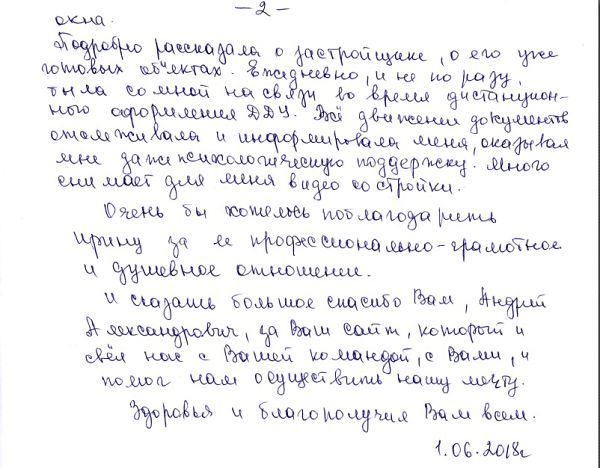 — 2 —
окна.
Подробно рассказала о застройщике, о его уже
готовых объектах. Ежедневно, и не по разу,
была со мной на связи во время дистанцион-
ного оформления ДДУ. Всё движение документов
отслеживала и информировала меня, оказывая
мне даже психологическую поддержку. Много
снимает для меня видео со стройки.
Очень бы хотелось поблагодарить
Ирину за ее профессионально-грамотное
и душевное отношение.
И сказать большое спасибо Вам, Андрей
Александрович, за Ваш сайт, который и
свёл нас с Вашей командой, с Вами, и
помог нам осуществить нашу мечту.
Здоровья и благополучия Вам всем.
1.06.2018г